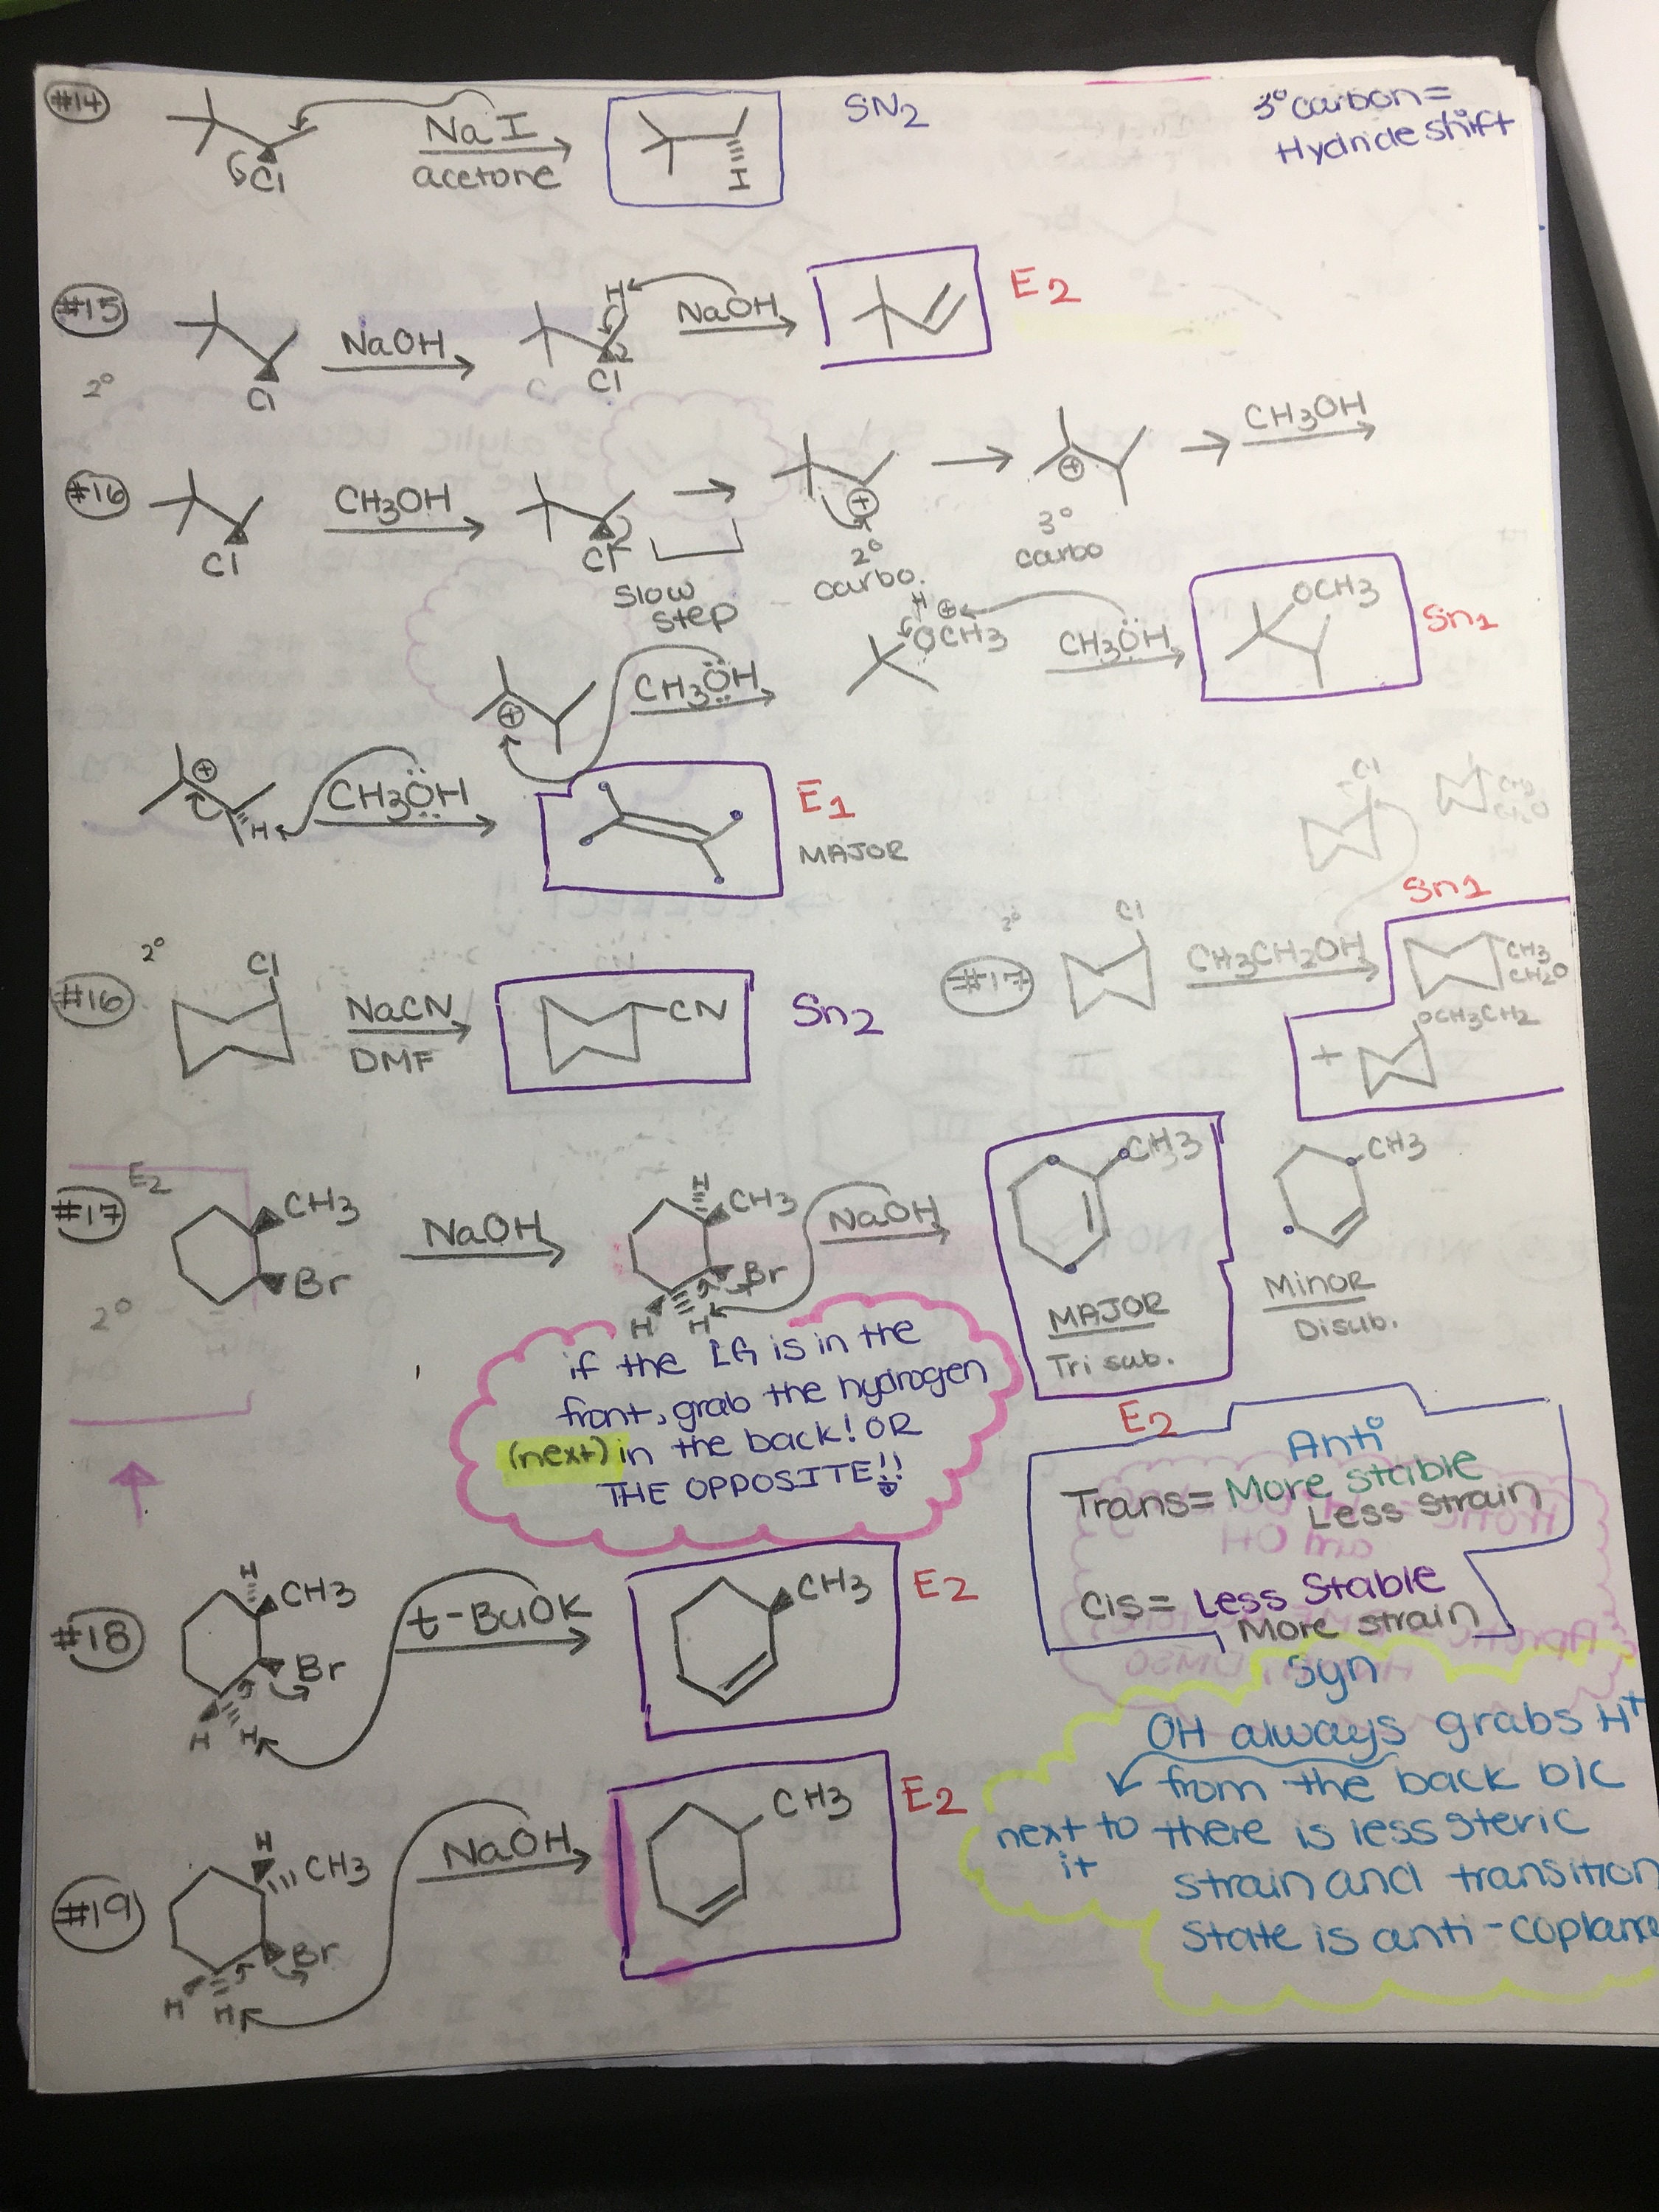 #14
Cl
NaI
acetone
I
SN2
3° carbon =
Hydride shift
#15
2°
Cl
NaOH
H
Cl
NaOH
E2
#16
Cl
CH3OH
Cl
slow
step
2°
carbo.
3°
carbo
CH3OH
CH3ÖH
H
OCH3
CH3ÖH
OCH3
Sn1
H
CH3ÖH
E1
MAJOR
Cl
CH3
CH2O
#16
2°
Cl
NaCN
DMF
CN
Sn2
#17
2°
Cl
CH3CH2OH
Sn1
CH3
CH2O
+
OCH3CH2
#17
E2
2°
CH3
Br
NaOH
H
CH3
Br
H
H
NaOH
CH3
MAJOR
Tri sub.
E2
CH3
MINOR
Disub.
if the LG is in the
front, grab the hydrogen
(next) in the back! OR
THE OPPOSITE!!
Anti
Trans = More stable
Less strain
Cis = Less Stable
More strain
syn
#18
H
CH3
Br
H
H
t-BuOK
CH3
E2
OH always grabs H+
from the back b/c
next to there is less steric
it
strain and transition
state is anti-coplanar
#19
H
CH3
Br
H
H
NaOH
CH3
E2